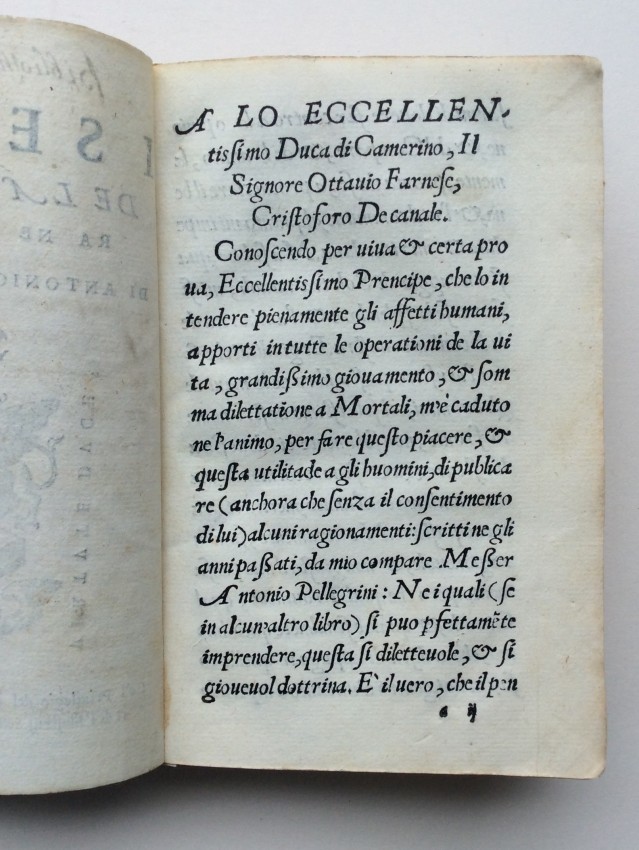 A LO ECCELLEN-
tiſſimo Duca di Camerino, Il
Signore Ottauio Farneſe,
Criſtoforo De canale.
Conoſcendo per uiua & certa pro
ua, Eccellentiſſimo Prencipe, che lo in
tendere pienamente gli affetti humani,
apporti in tutte le operationi de la ui
ta, grandiſſimo giouamento, & ſom
ma dilettatione a Mortali, m'è caduto
ne l'animo, per fare queſto piacere, &
queſta utilitade a gli huomini, di publica
re (anchora che ſenza il conſentimento
di lui) alcuni ragionamenti: ſcritti ne gli
anni paſſati, da mio compare Meſſer
Antonio Pellegrini: Ne i quali (ſe
in alcun'altro libro) ſi puo pfettamẽte
imprendere, queſta ſi diletteuole, & ſi
gioueuol dottrina. E' il uero, che il pen
a ij